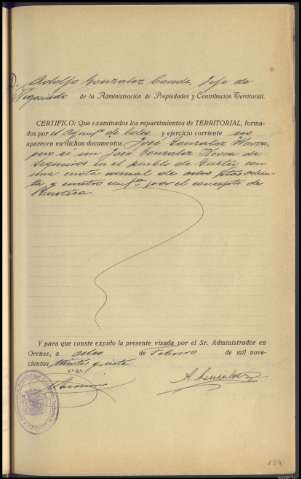 Adolfo Gonzalez Conde, Jefe de
Negociado de la Administración de Propiedades y Contribución Territorial.
CERTIFICO: Que examinados los repartimientos de TERRITORIAL, forma-
dos por el Ayunt.º de y ejercicio corriente no
aparece en dichos documentos José Gonzalez
pero si un José Gonzalez Novoa de
en el pueblo de con
una cuota anual de ocho ptas ochen-
ta y cuatro cent.s por el concepto de
Rustica
Y para que conste expido la presente visada por el Sr. Administrador en
Orense, a ocho de Febrero de mil nove-
cientos treinta y siete
V.º B.º
A. Gonzalez